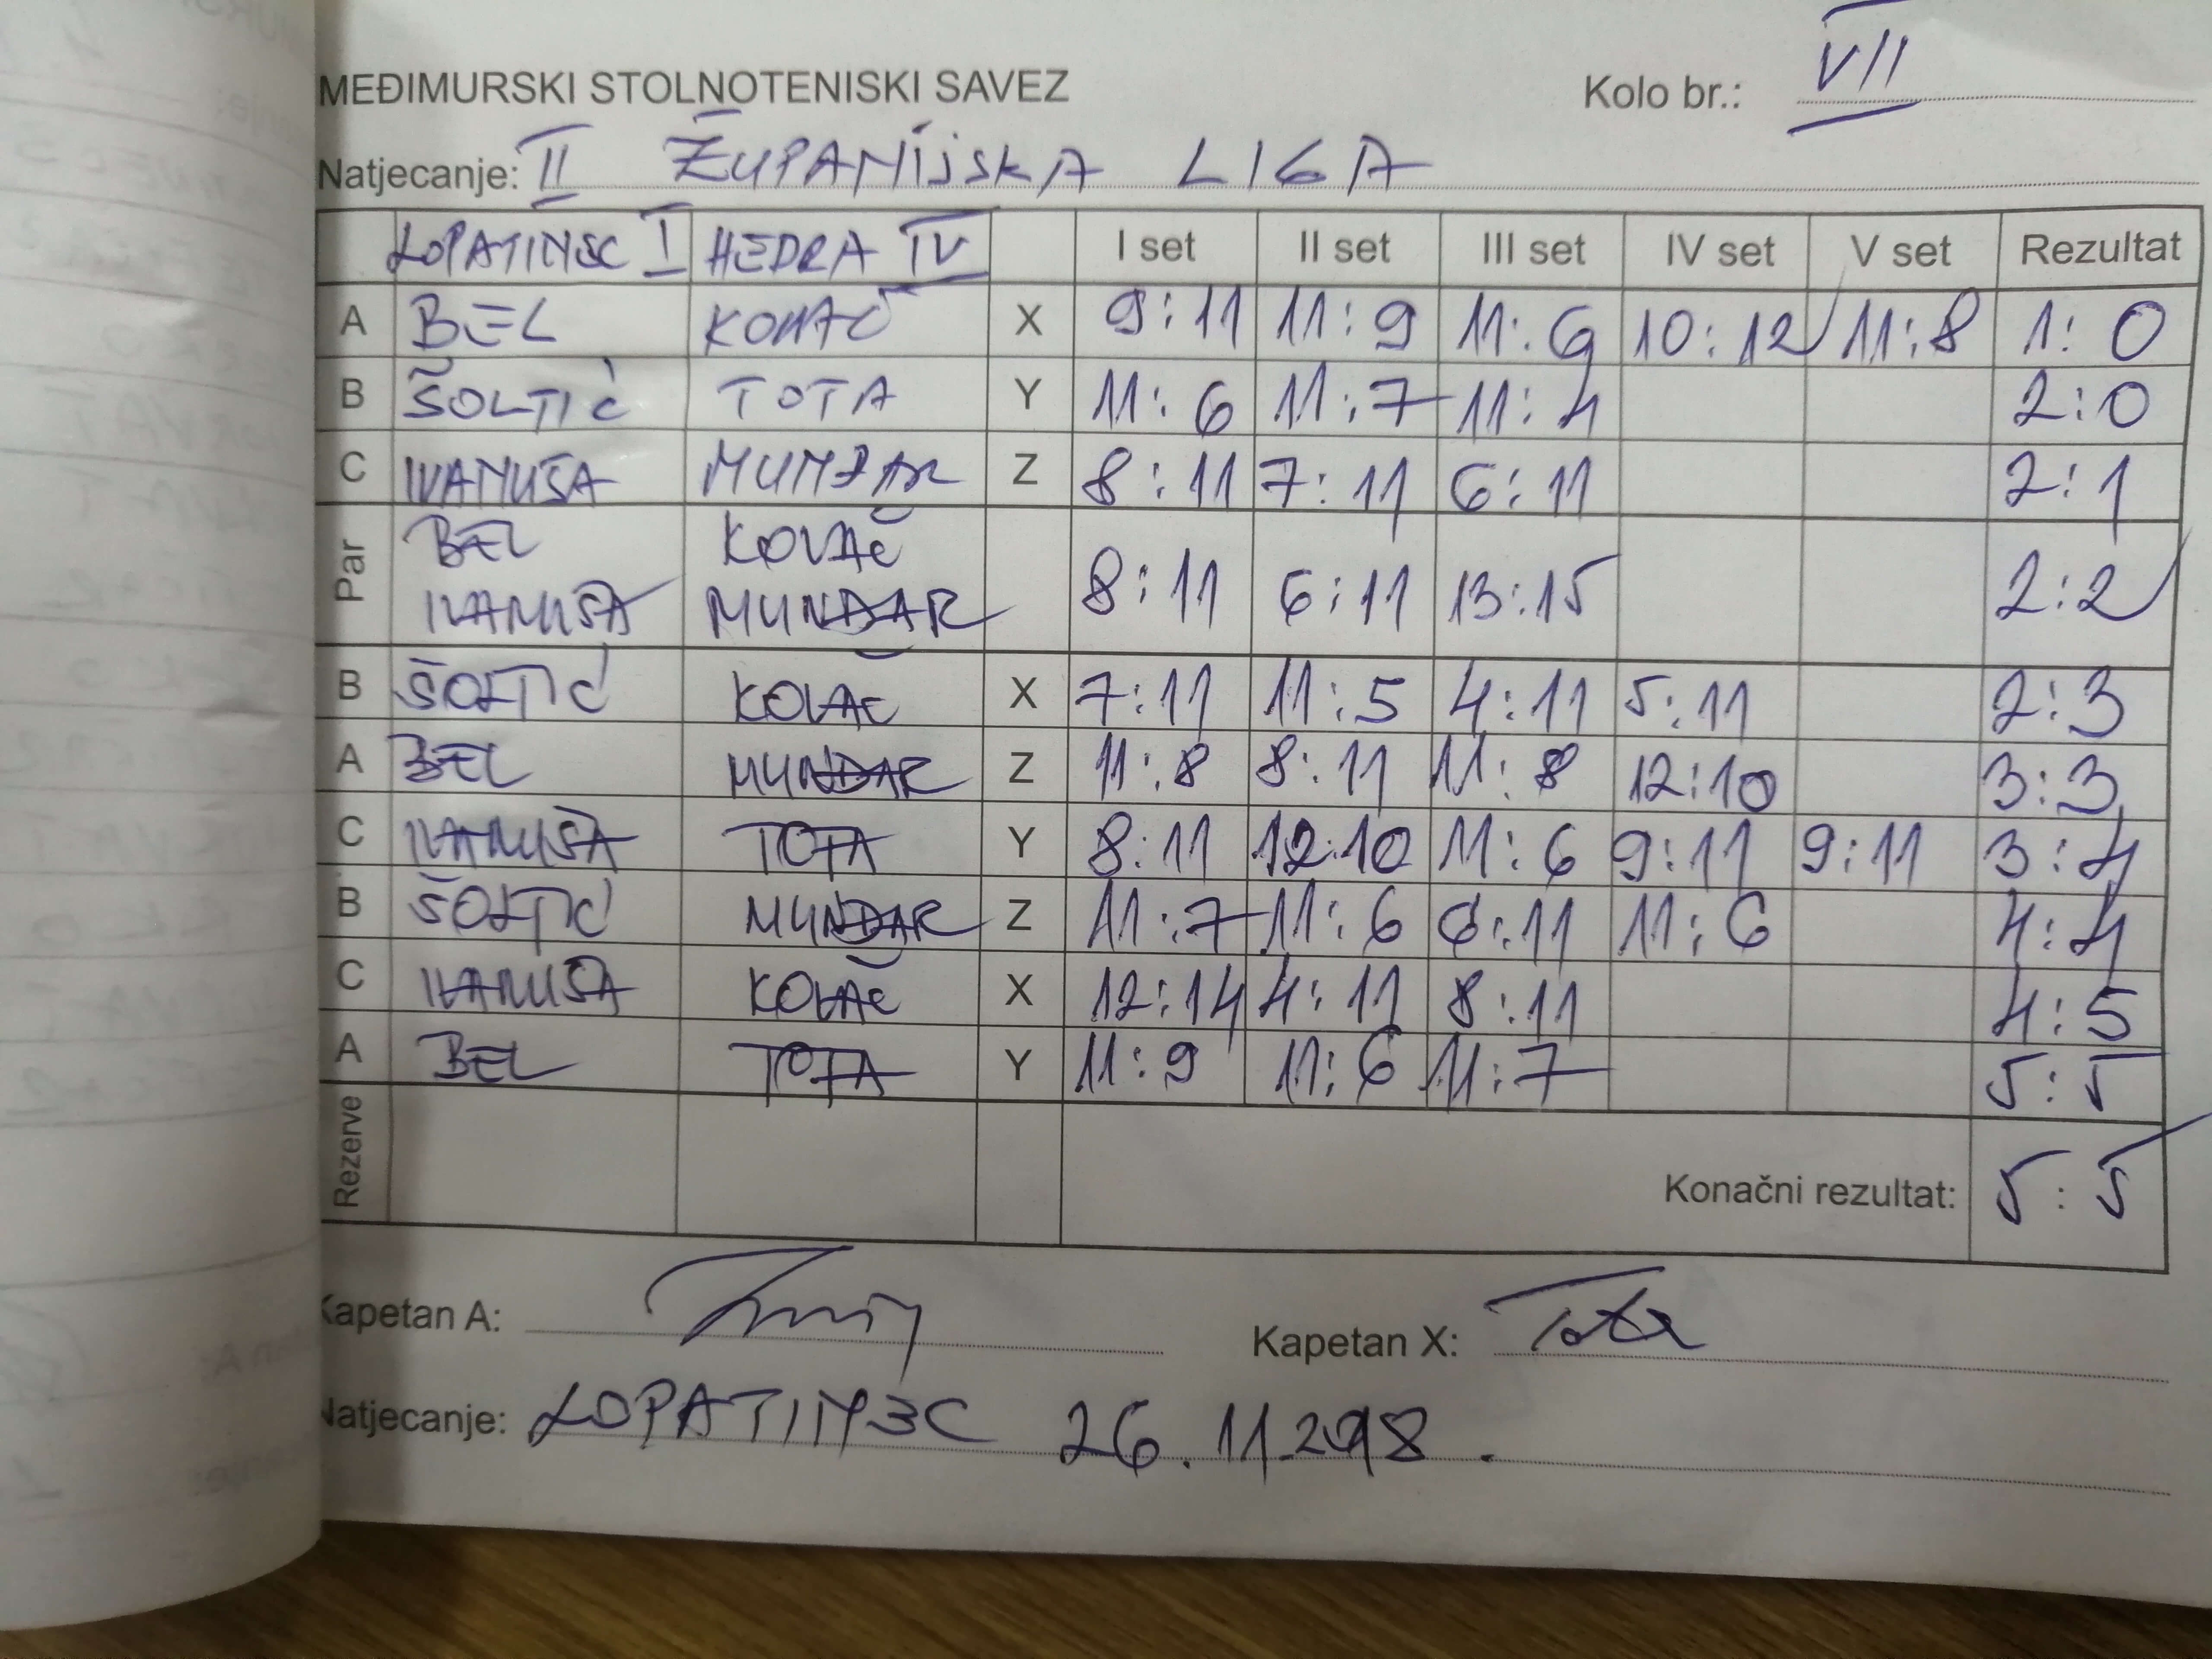 MEĐIMURSKI STOLNOTENISKI SAVEZ Kolo br.: VII
Natjecanje: II ŽUPANIJSKA LIGA
LOPATINEC I HEDRA IV I set II set III set IV set V set Rezultat
A BEL KOVAČ X 9:11 11:9 11:9 10:12 11:8 1:0
B ŠOLTIĆ TOTA Y 11:6 11:7 11:4 2:0
C IVANUŠA MUNDAR Z 8:11 7:11 6:11 2:1
Par BEL KOVAČ
IVANUŠA MUNDAR 8:11 6:11 13:15 2:2
B ŠOLTIĆ KOVAČ X 7:11 11:5 4:11 5:11 2:3
A BEL MUNDAR Z 11:8 8:11 11:8 12:10 3:3
C IVANUŠA TOTA Y 8:11 12:10 11:6 9:11 9:11 3:4
B ŠOLTIĆ MUNDAR Z 11:7 11:6 6:11 11:6 4:4
C IVANUŠA KOVAČ X 12:14 4:11 8:11 4:5
A BEL TOTA Y 11:9 11:6 11:7 5:5
Rezerve Konačni rezultat: 5:5
Kapetan A: Kapetan X: Tota
Natjecanje: LOPATINEC 26.11.2018.